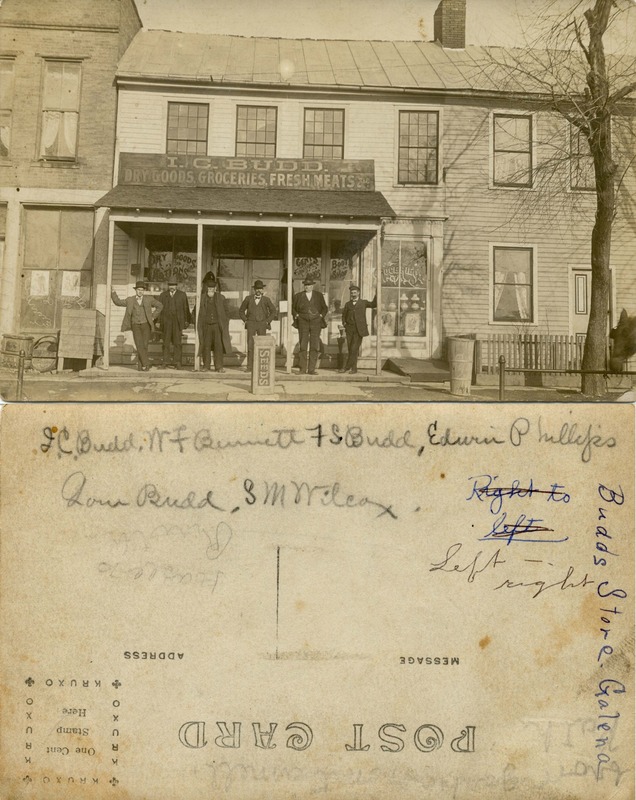 I. C. BUDD.
DRY GOODS, GROCERIES, FRESH MEATS &c
DRY GOODS
SEEDS
I.C. Budd, W F Burnett F S Budd, Edwin Phillips
Tom Budd, S M Wilcox.
Right to
left
Left —
right
Budds Store. Galena
ADDRESS
MESSAGE
POST CARD
KRUXO
KRUXO
KRUXO
KRUXO
One Cent
Stamp
Here